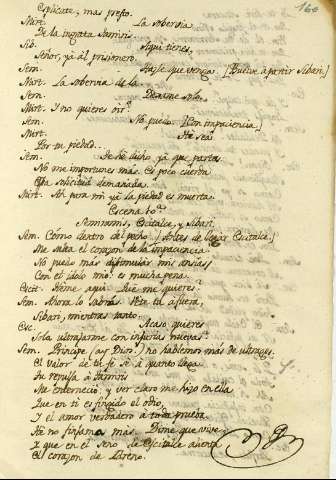 160
Esplicate, mas presto.
Mirt. La sobervia
De la ingrata Tamiri.
Sib. Aqui tienes,
Señor, ya al prisionero.
Sem. Hazle que venga. [Vuelve a partir Sibari]
Mirt. La sobervia de la
Sem. Dexame solo.
Mirt. Y no quieres oir?
Sem. No puedo. [Con impaciencia.]
Mirt. Ha sea
Por tu piedad.
Sem. he dicho ya que partas
No me importunes más. Es poco cuerda
Esta solicitud demasiada.
Mirt. Ah para mi ya la piedad es muerta.
Escena 10ª
Semiramis, Escitalce, y Sibari.
Sem. Cómo dentro del pecho [Antes de llegar Escitalce.]
Me salta el corazon de la impaciencia
No puedo más disimular mis ansias
Con el idolo mio: es mucha pena.
Escit. Heme aqui. Qué me quieres?
Sem. Ahora lo sabrás. Vete tu afuera,
Sibari, mientras tanto.
Esc. Acaso quieres
Sola ultrajarme con injurias nuevas?
Sem. Principe (ay Dios!) no hablemos más de ultrages.
El valor de tu fe sé à quanto llega
Tu repulsa à Tamiri
Me enterneció, y ver claro me hizo en ella
Que en ti es fingido el odio,
Y el amor verdadero a toda prueba
No finjamos más. Dime que vive
Y que en el seno de Escitalce alienta
El corazon de Idreno.